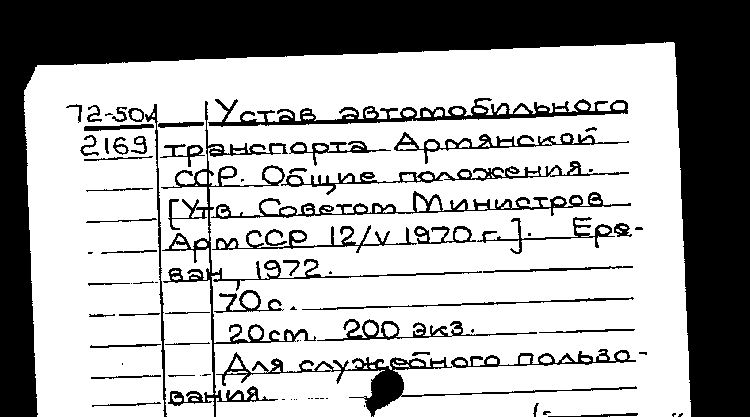 72-50к Устав автомобильного
2169 транспорта Армянской
ССР. Общие положения.
[Утв. Советом Министров
АрмССР 12/V 1970 г.]. Ере-
ван, 1972.
70 с.
20 ст. 200 экз.
Для служебного пользо-
вания.